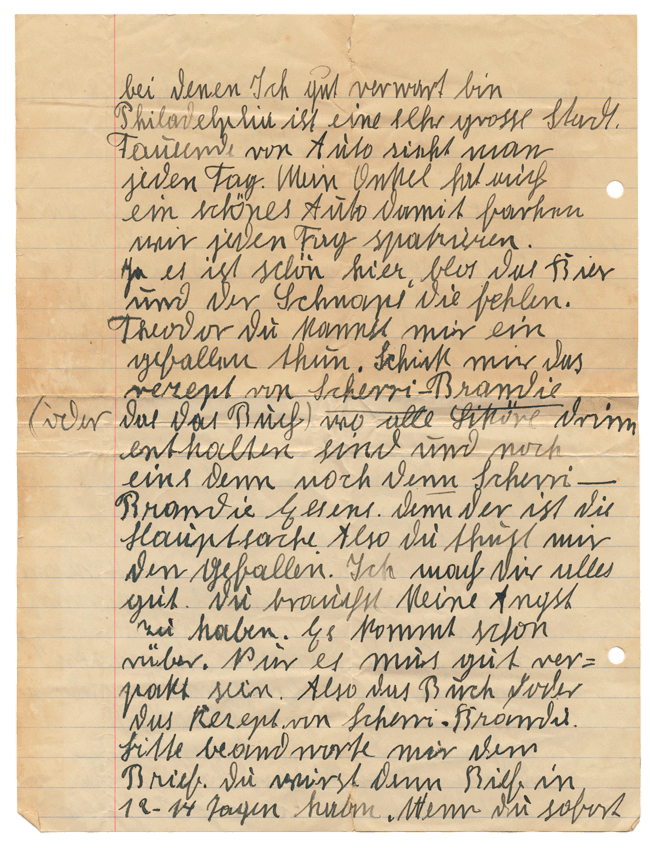 bei denen Ich gut verwart bin
Philadelphia ist eine sehr grosse Stadt.
Tausende von Auto sieht man
jeden Tag. Mein Onkel hat auch
ein schönes Auto damit farhen
wir jeden Tag spatzieren.
Ja es ist schön hier, blos das Bier
und der Schnaps die fehlen.
Theodor du kannst mir ein
gefallen thun. Schick mir das
rezept von Scherri-Brandie
(oder das das Buch) wo alle Liköre drinn
enthalten sind und noch
eins denn noch denn Scherri-
Brandie Esens. denn der ist die
Hauptsache Also du thust mir
den gefallen. Ich mach dir alles
gut. du brauchst keine Angst
zu haben. Es kommt schon
rüber. Nur es mus gut ver=
pakt sein. Also das Buch oder
das Rezept von Scherri-Brandie.
bitte beandworte mir dem
Brief. du wirst denn Bief in
12-14 Tagen haben. Wenn du sofort